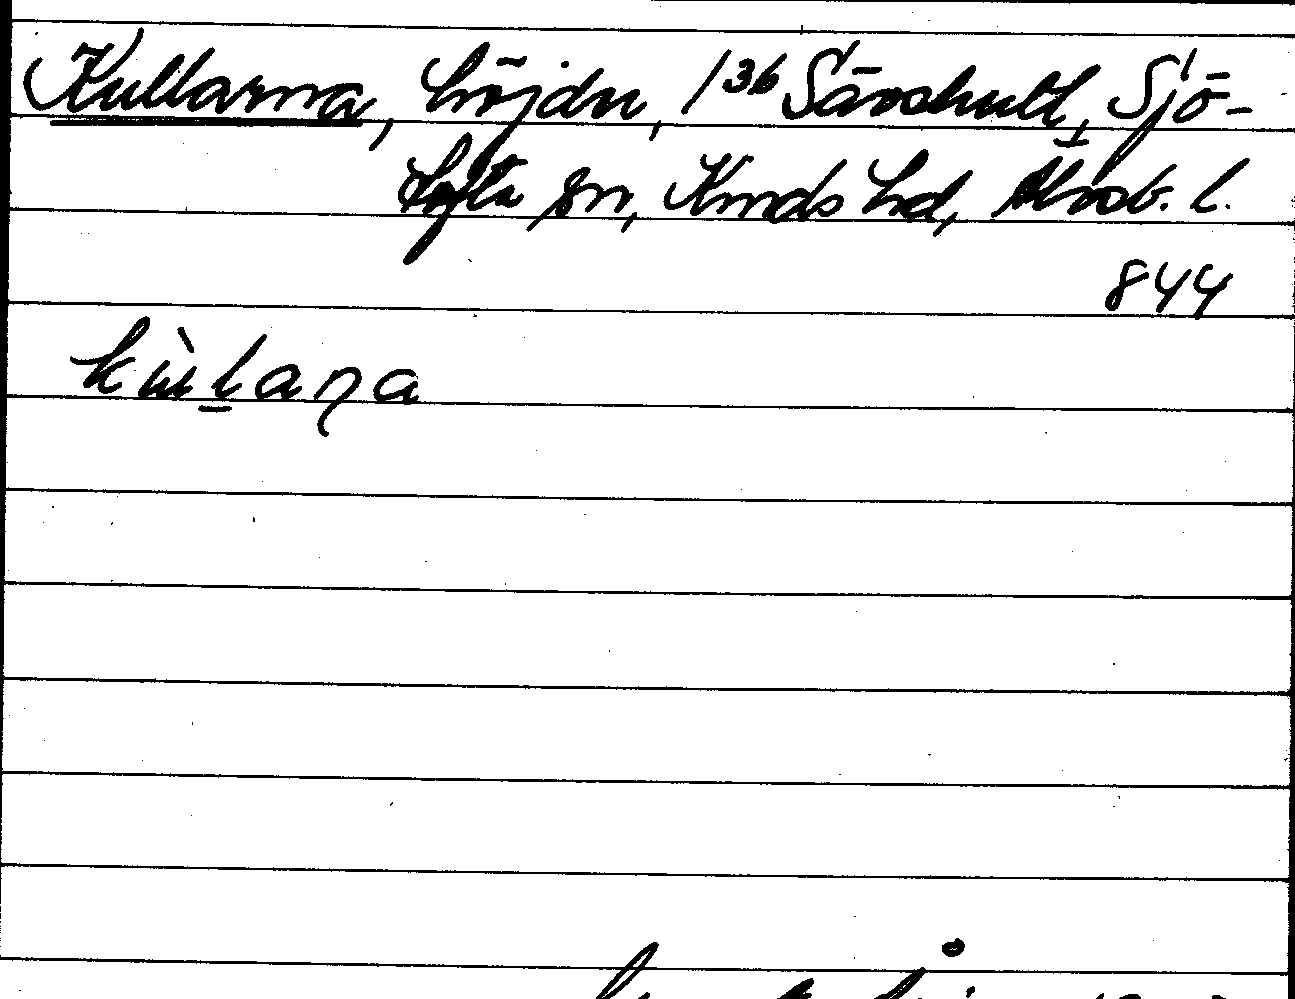 Kullarna, höjder, 1³⁶ Sävshult, Sjö-
tofta sn, Kinds hd, Älvsb. l.
844
kùl̠aɳa